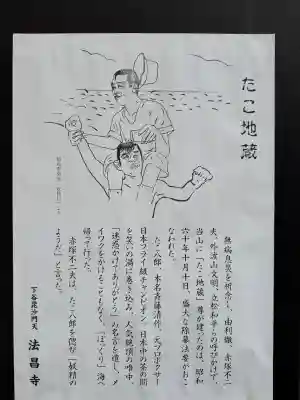 たこ地蔵
無病息災を祈念し、由利徹、赤塚不二
夫、外波山文明、立松和平らの呼びかけで、
当山に「たこ地蔵」尊が建ったのは、昭和
六十年十月十日、盛大な除幕法要がおこ
なわれた。
たこ八郎、本名斉藤清作、元プロボクサー
日本フライ級チャンピオン。日本中の茶の間
を笑いの渦に巻き込み、人気絶頂の唯中、
「迷惑かけてありがとう」の名言を遺し、メ
イワクをかけることもなく、「ぽっくり」海へ
帰って行った。
赤塚不二夫は、たこ八郎を偲び「妖精の
ようだ」と言った。
下谷毘沙門天 法昌寺